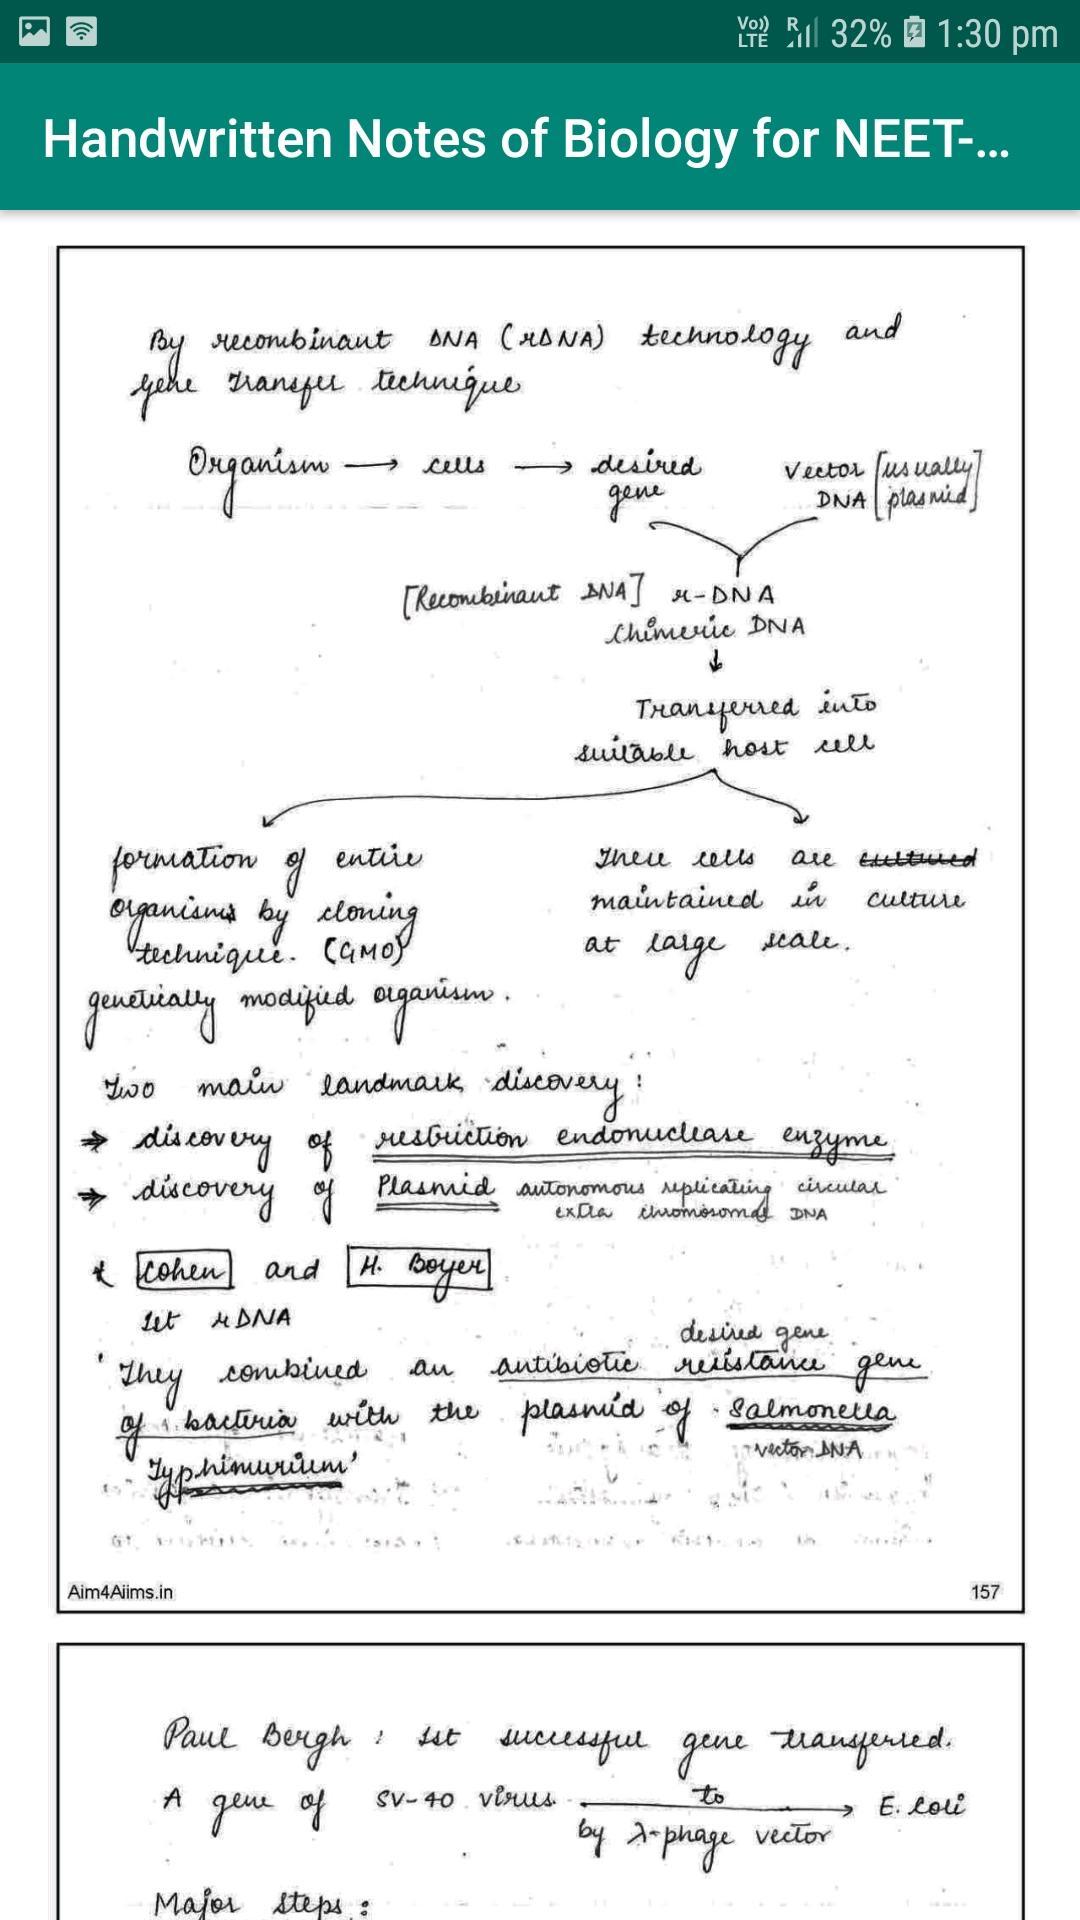 Vo)) LTE R 32% 1:30 pm
Handwritten Notes of Biology for NEET-...
By recombinant DNA (rDNA) technology and
gene transfer technique
Organism → cells → desired gene
Vector DNA [usually plasmid]
[Recombinant DNA] r-DNA
Chimeric DNA
↓
Transferred into
suitable host cell
formation of entire
organisms by cloning
technique. (GMO)
genetically modified organism.
These cells are cultured
maintained in culture
at large scale.
Two main landmark discovery :
⇒ discovery of restriction endonuclease enzyme
⇒ discovery of Plasmid autonomous replicating circular
extra chromosomal DNA
* Cohen and H. Boyer
1st rDNA
desired gene
'They combined an antibiotic resistance gene
of bacteria with the plasmid of Salmonella
vector DNA
Typhimurium'
Aim4Aiims.in
157
Paul Bergh : 1st successful gene transferred.
A gene of SV-40 virus to → E. Coli
by λ-phage vector
Major steps :